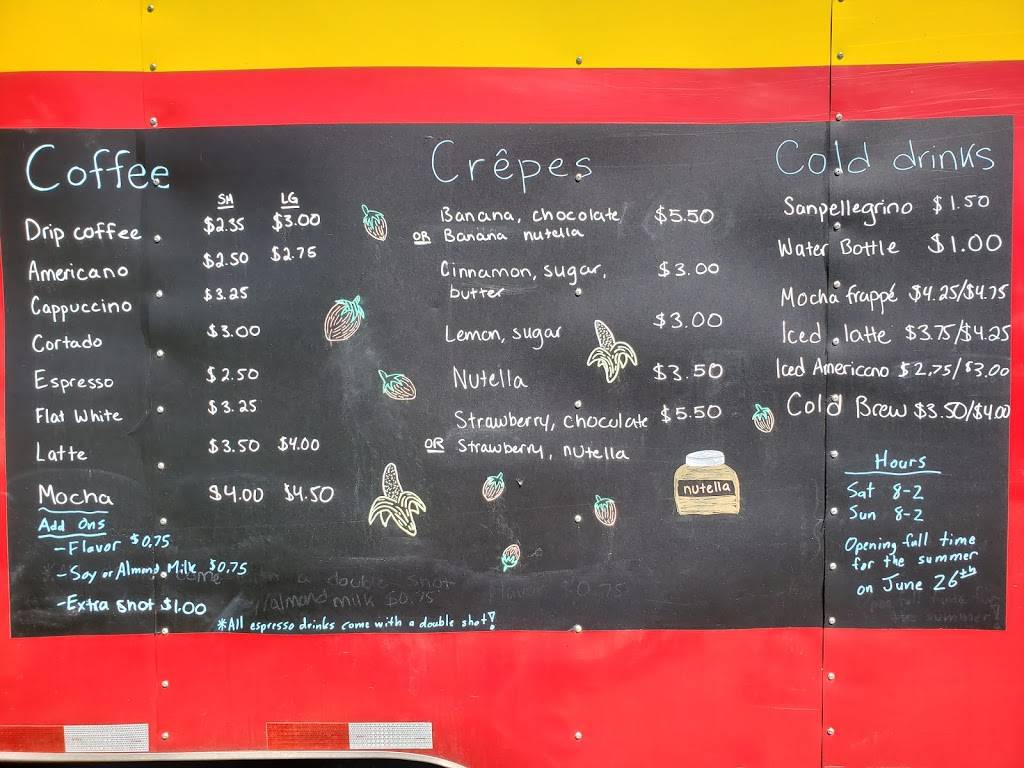 Coffee
SM LG
Drip coffee $2.35 $3.00
Americano $2.50 $2.75
Cappuccino $3.25
Cortado $3.00
Espresso $2.50
Flat White $3.25
Latte $3.50 $4.00
Mocha $4.00 $4.50
Add Ons
-Flavor $0.75
-Soy or Almond Milk $0.75
-Extra shot $1.00
*All espresso drinks come with a double shot!
Crêpes
Banana, chocolate $5.50
OR Banana nutella
Cinnamon, sugar, $3.00
butter
Lemon, sugar $3.00
Nutella $3.50
Strawberry, chocolate $5.50
OR Strawberry, nutella
nutella
Cold drinks
Sanpellegrino $1.50
Water Bottle $1.00
Mocha frappé $4.25/$4.75
Iced latte $3.75/$4.25
Iced Americano $2.75/$3.00
Cold Brew $3.50/$4.00
Hours
Sat 8-2
Sun 8-2
Opening full time
for the summer
on June 26th
come with a double shot
/almond milk $0.75
Flavor $0.75
the summer!